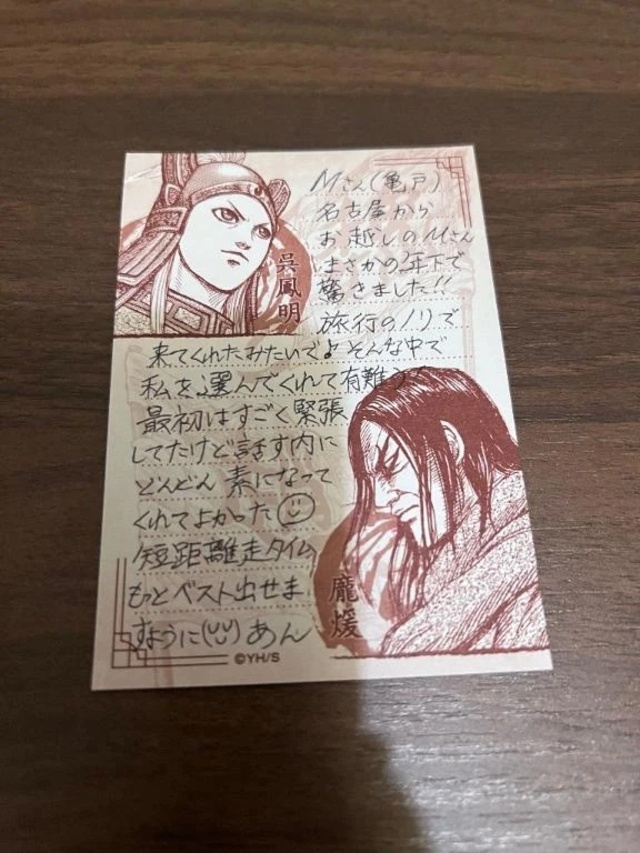 Mさん(亀戸)
名古屋から
お越しのMさん
まさかの2年下で
驚きました!!
旅行のノリで
来てくれたみたいで♪そんな中で
私を選んでくれて有難う
最初はすごく緊張
してたけど話す内に
どんどん 素になって
くれてよかった☺
短距離走タイム
もっとベスト出せま
すように(¨) あん
呉鳳明
龐煖
©YH/S